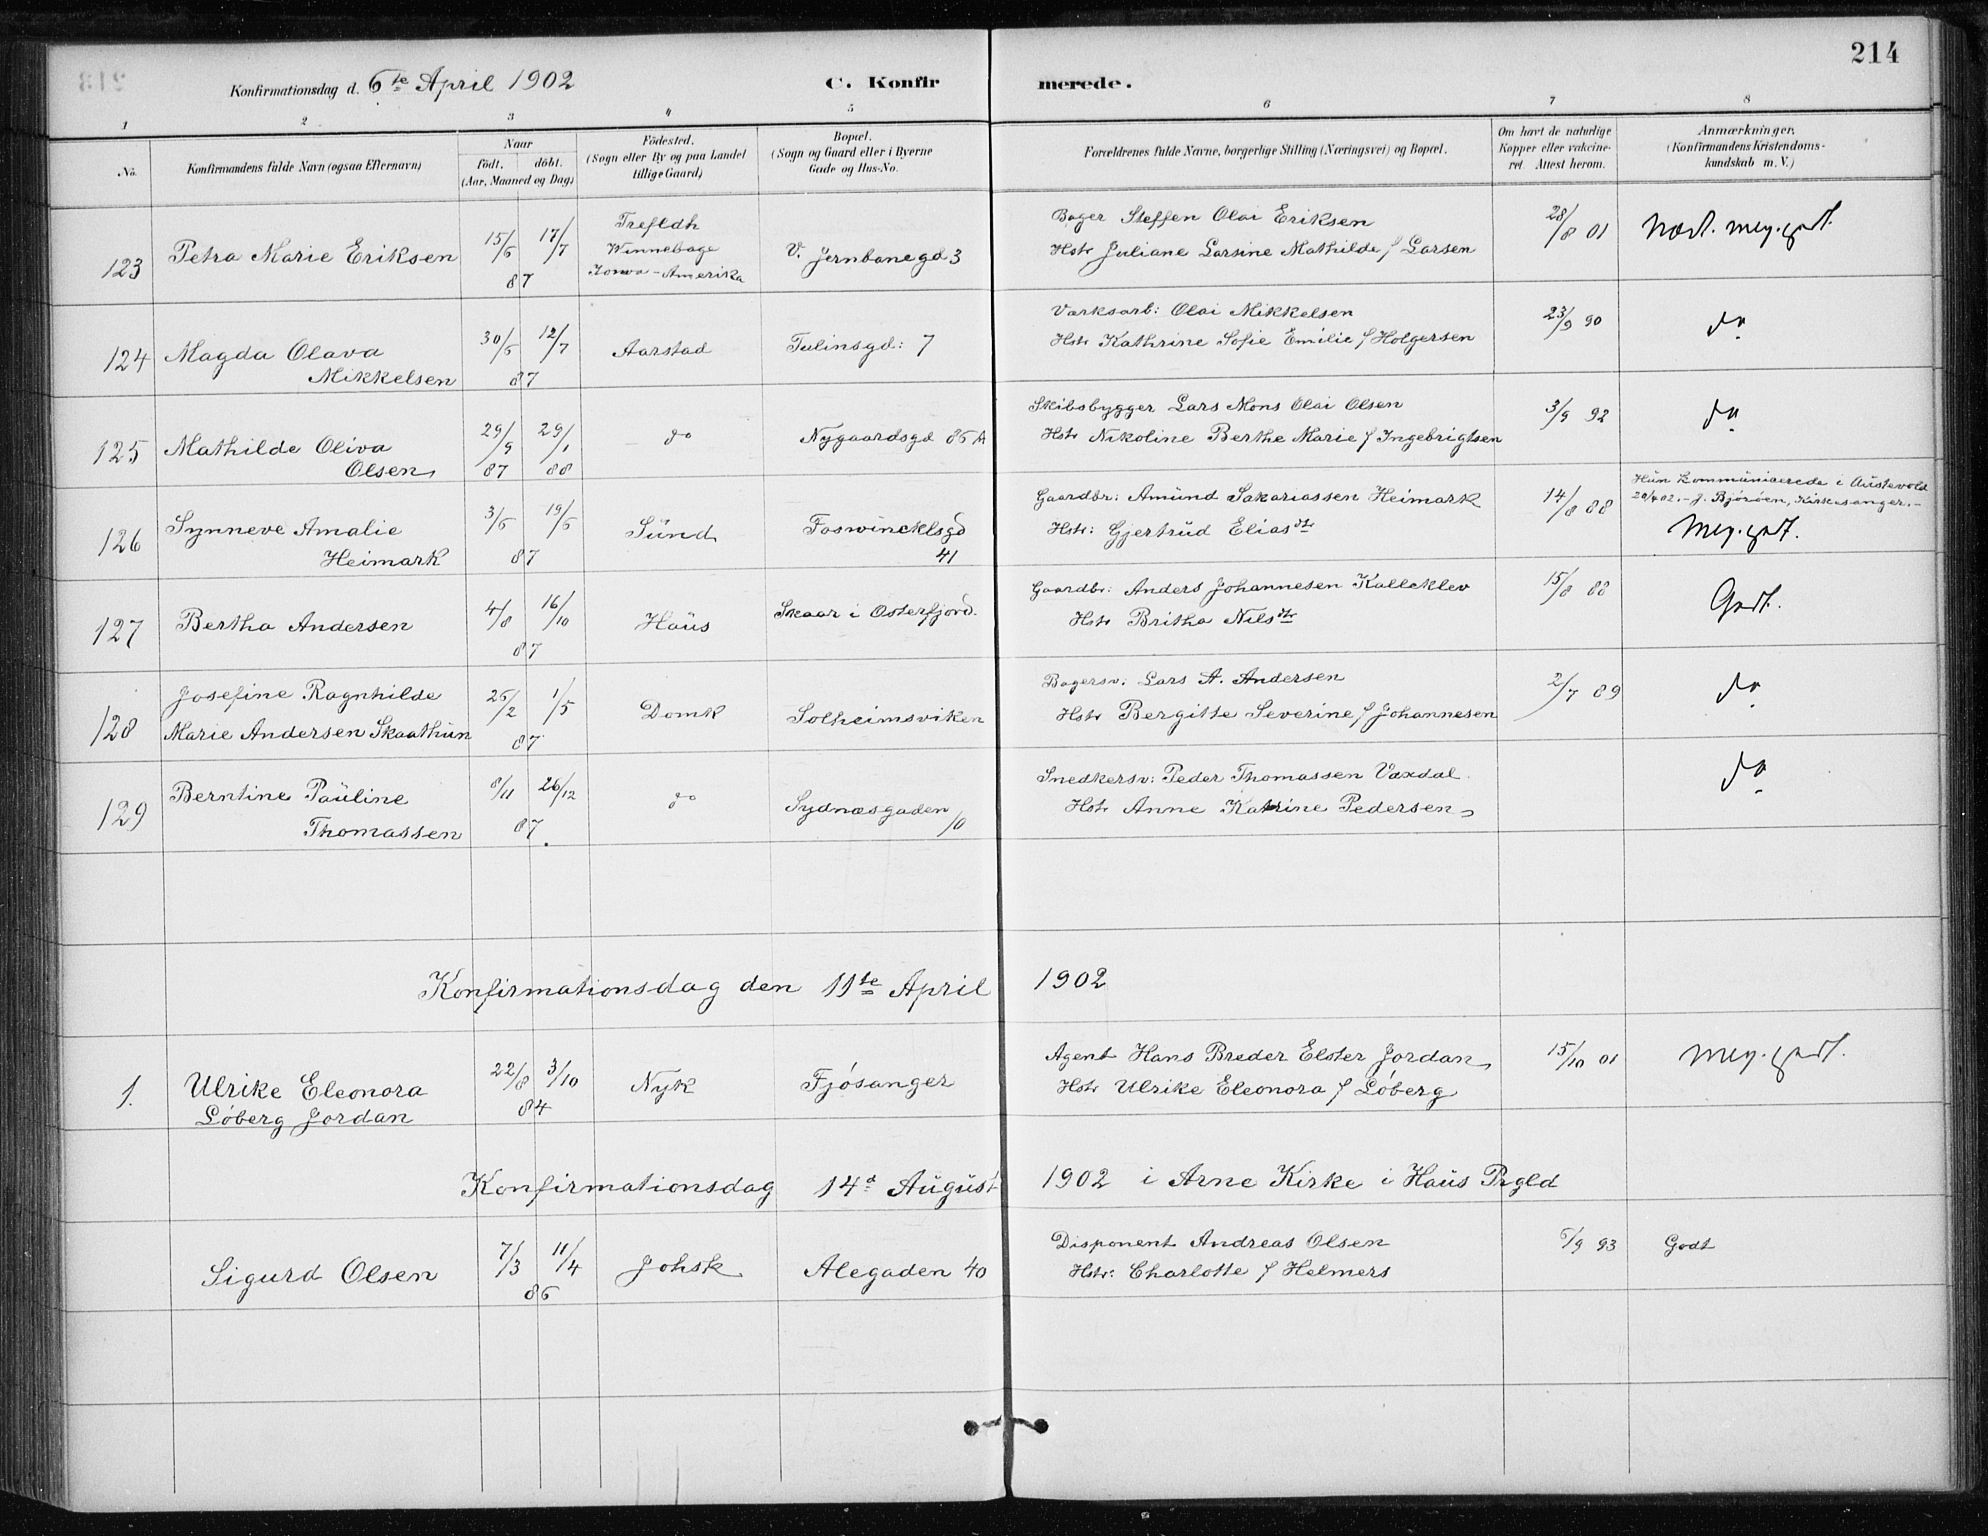 214
Konfirmationsdag d. 6te April 1902
C. Konfirmerede.
1 2 3 4 5 6 7 8
No.
Konfirmandens fulde Navn (ogsaa Efternavn)
Naar
født. døbt.
(Aar, Maaned og Dag)
Fødested.
(Sogn eller By og paa Landet
tillige Gaard)
Bopæl.
(Sogn og Gaard eller i Byerne
Gade og Hus-No.
Forældrenes fulde Navne, borgerlige Stilling (Næringsvei) og Bopæl.
Om havt de naturlige
Kopper eller vakcine-
ret. Attest herom.
Anmærkninger.
(Konfirmandens Kristendoms-
kundskab m. V.)
123 Petra Marie Eriksen 15/6 17/7 87
Winnebago
Iowa - Amerika
V. Jernbanegd 3
Bager Steffen Olai Eriksen
Hstr Juliane Larsine Mathilde f Larsen
28/8 01
Næst. meg. godt.
124 Magda Olava
Mikkelsen
30/5 12/7 87
Aarstad
Tulinsgd: 7
Værksarb: Olai Mikkelsen
Hstr Kathrine Sofie Emilie f Holgersen
23/9 90
do
125 Mathilde Oliva
Olsen
29/9 87 29/1 88
do
Nygaardsgd 85 A
Skibsbygger Lars Mons Olai Olsen
Hstr Nikoline Berthe Marie f Ingebrigtsen
3/9 92
do
126 Synneve Amalie
Heimark
3/5 19/5 87
Sund
Foswinckelsgd
41
Gaardbr: Amund Sakariassen Heimark
Hstr: Gjertrud Eliasdtr
14/8 88
Hun kommunicerede i Austevold
20/4 02. - J. Bjørøen, Kirkesanger. -
Meg. godt.
127 Bertha Andersen
4/8 16/10 87
Haus
Skaar i Osterfjord.
Gaardbr: Anders Johannesen Kalleklev
Hstr Britha Nilsdtr
15/8 88
Godt.
128 Josefine Ragnhilde
Marie Andersen Skaathun
26/2 1/5 87
Domk
Solheimsviken
Bagersv: Lars A. Andersen
Hstr Bergitte Severine f Johannesen
2/7 89
do
129 Berntine Pauline
Thomassen
8/11 26/12 87.
do
Sydnæsgaden
10
Snedkersv: Peder Thomassen Vaxdal.
Hstr Anne Katrine Pedersen
do
Konfirmationsdag den 11te April 1902
1. Ulrike Eleonora
Løberg Jordan
22/8 3/10 84
Nyk
Fjøsanger
Agent Hans Breder Elster Jordan
Hstr Ulrike Eleonora f Løberg
15/10 01
Meg. godt.
Konfirmationsdag 14d August 1902 i Arne Kirke i Haus Prgld
Sigurd Olsen
7/3 11/4 86
Johsk
Alegaden 40
Disponent Andreas Olsen
Hstr: Charlotte f Helmers
6/9 93
Godt